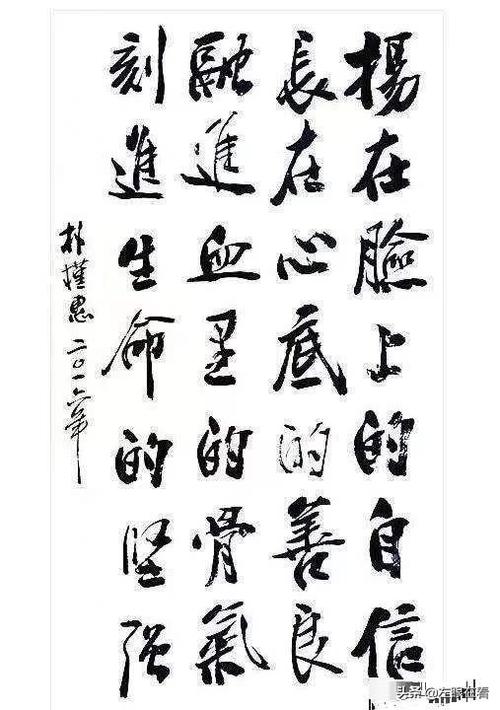 揚在臉上的自信
長在心底的善良
融進血里的骨氣
刻進生命的堅强
朴槿惠 二〇一六年
头条 @左眼在看